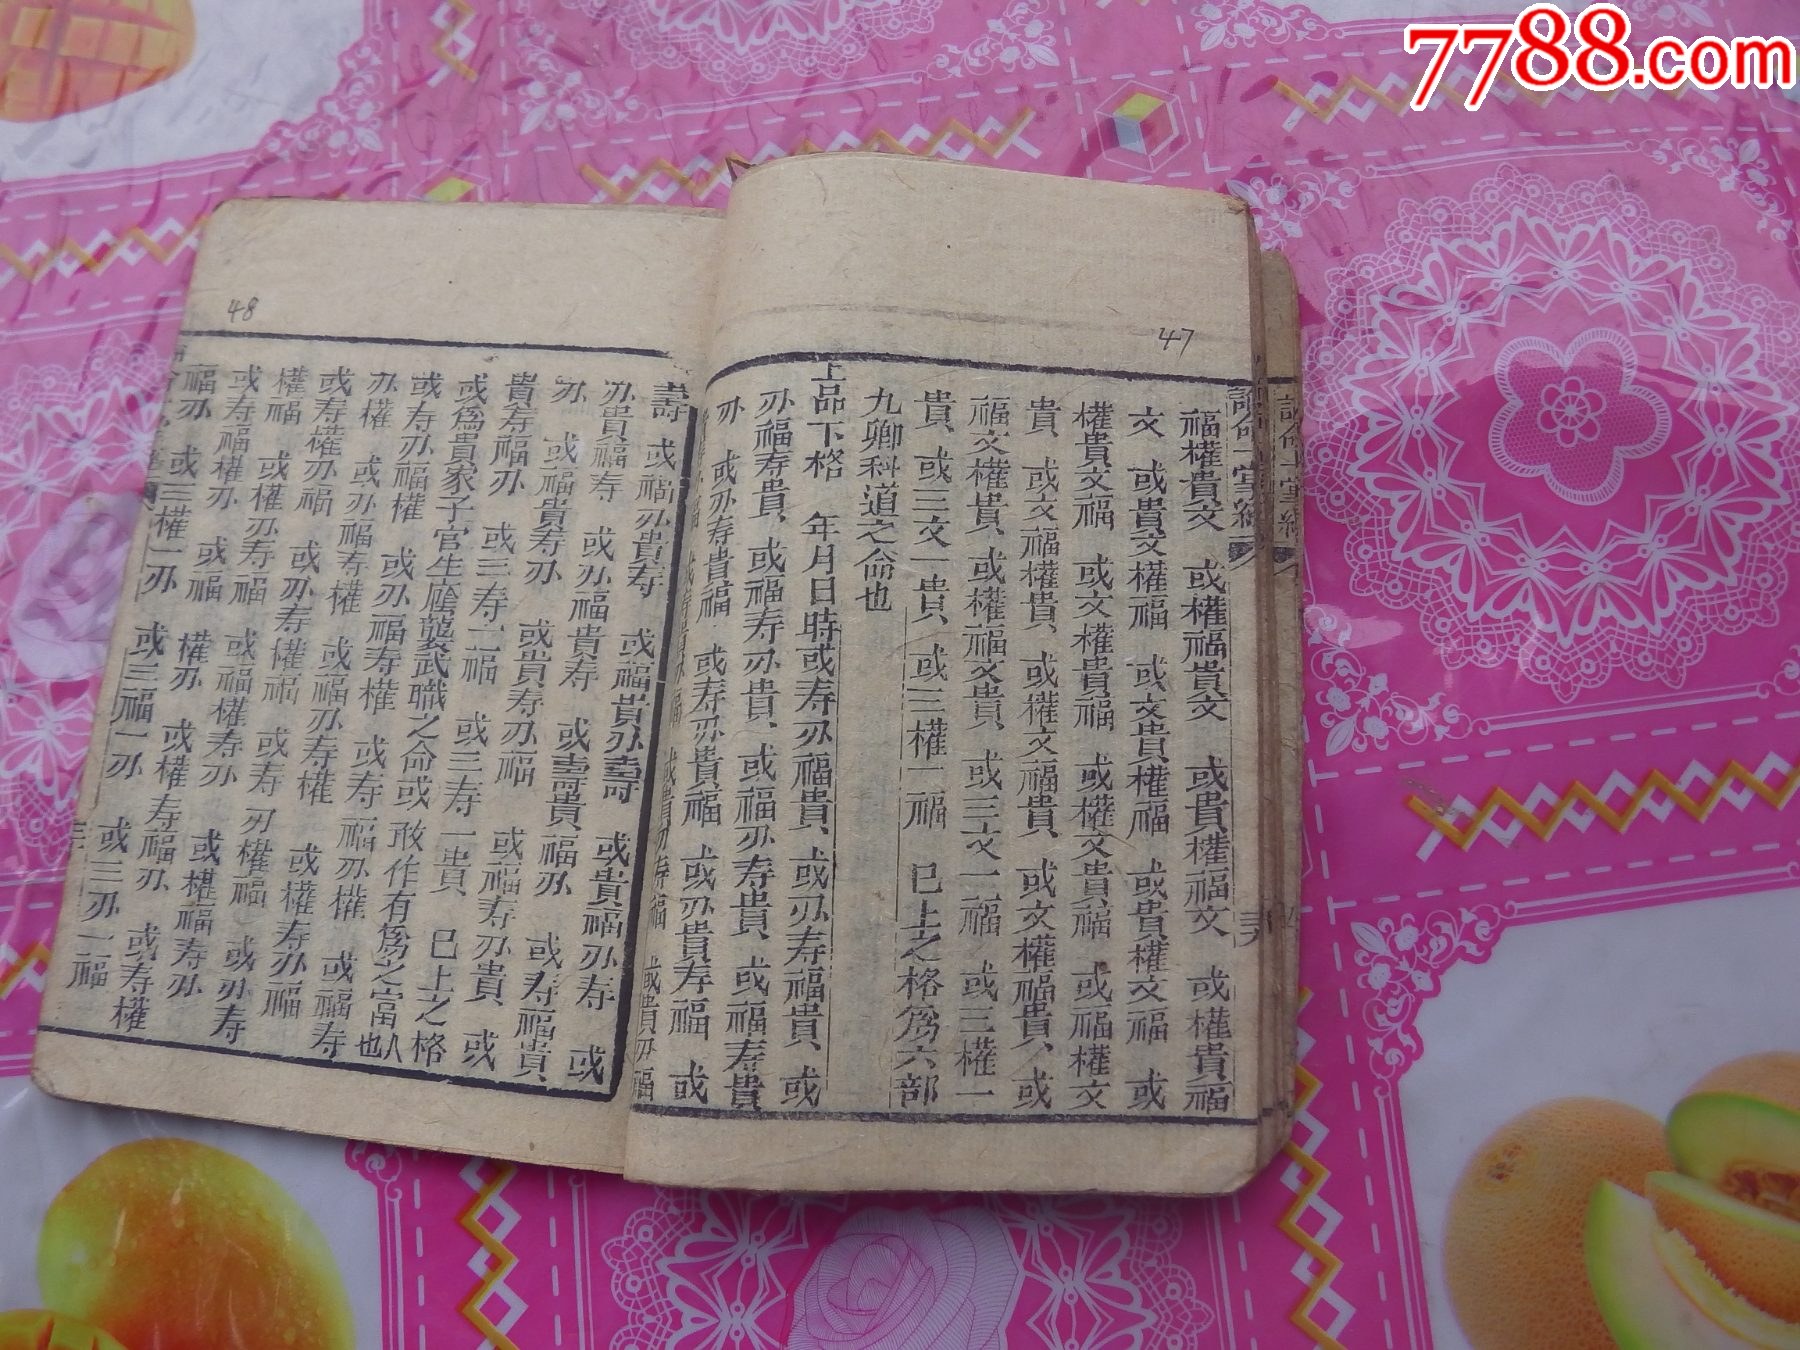 7788.com
47
福權貴文　或權福貴文　或貴權福文　或權貴福
文　或貴文權福　或文貴權福　或貴權文福　或
權貴文福　或文權貴福　或權文貴福　或福權文
貴、或文福權貴、或權文福貴、或文權福貴、或
福文權貴、或權福文貴、或三文一福　或三權一
貴、或三文一貴、或三權一福　已上之格為六部
九卿科道之命也
上品下格　年月日時或寿刃福貴、或刃寿福貴、或
刃福寿貴、或福寿刃貴、或福刃寿貴、或福寿貴
刃　或刃寿貴福　或寿刃貴福　或刃貴寿福　或
48
壽　或福刃貴寿　或福貴刃壽　或貴福刃寿　或
刃貴福寿　或刃福貴寿　或壽貴福刃　或寿福貴
刃　或福貴寿刃　或貴寿刃福　或福寿刃貴　或
貴寿福刃　或三寿一福　或三寿一貴　已上之格
或為貴家子官生廕襲武職之命或敢作有為之富人也
或寿刃福權　或刃福寿權　或寿福刃權　或福寿
刃權　或刃福寿權　或福刃寿權　或權寿刃福
或寿權刃福　或刃寿權福　或寿刃權福　或刃寿
權福　或權刃寿福　或福權寿刃　或權福寿刃
或寿福權刃　或福權刃　或權寿福刃　或寿權
福刃　或三權一刃　或三福一刃　或三刃一福